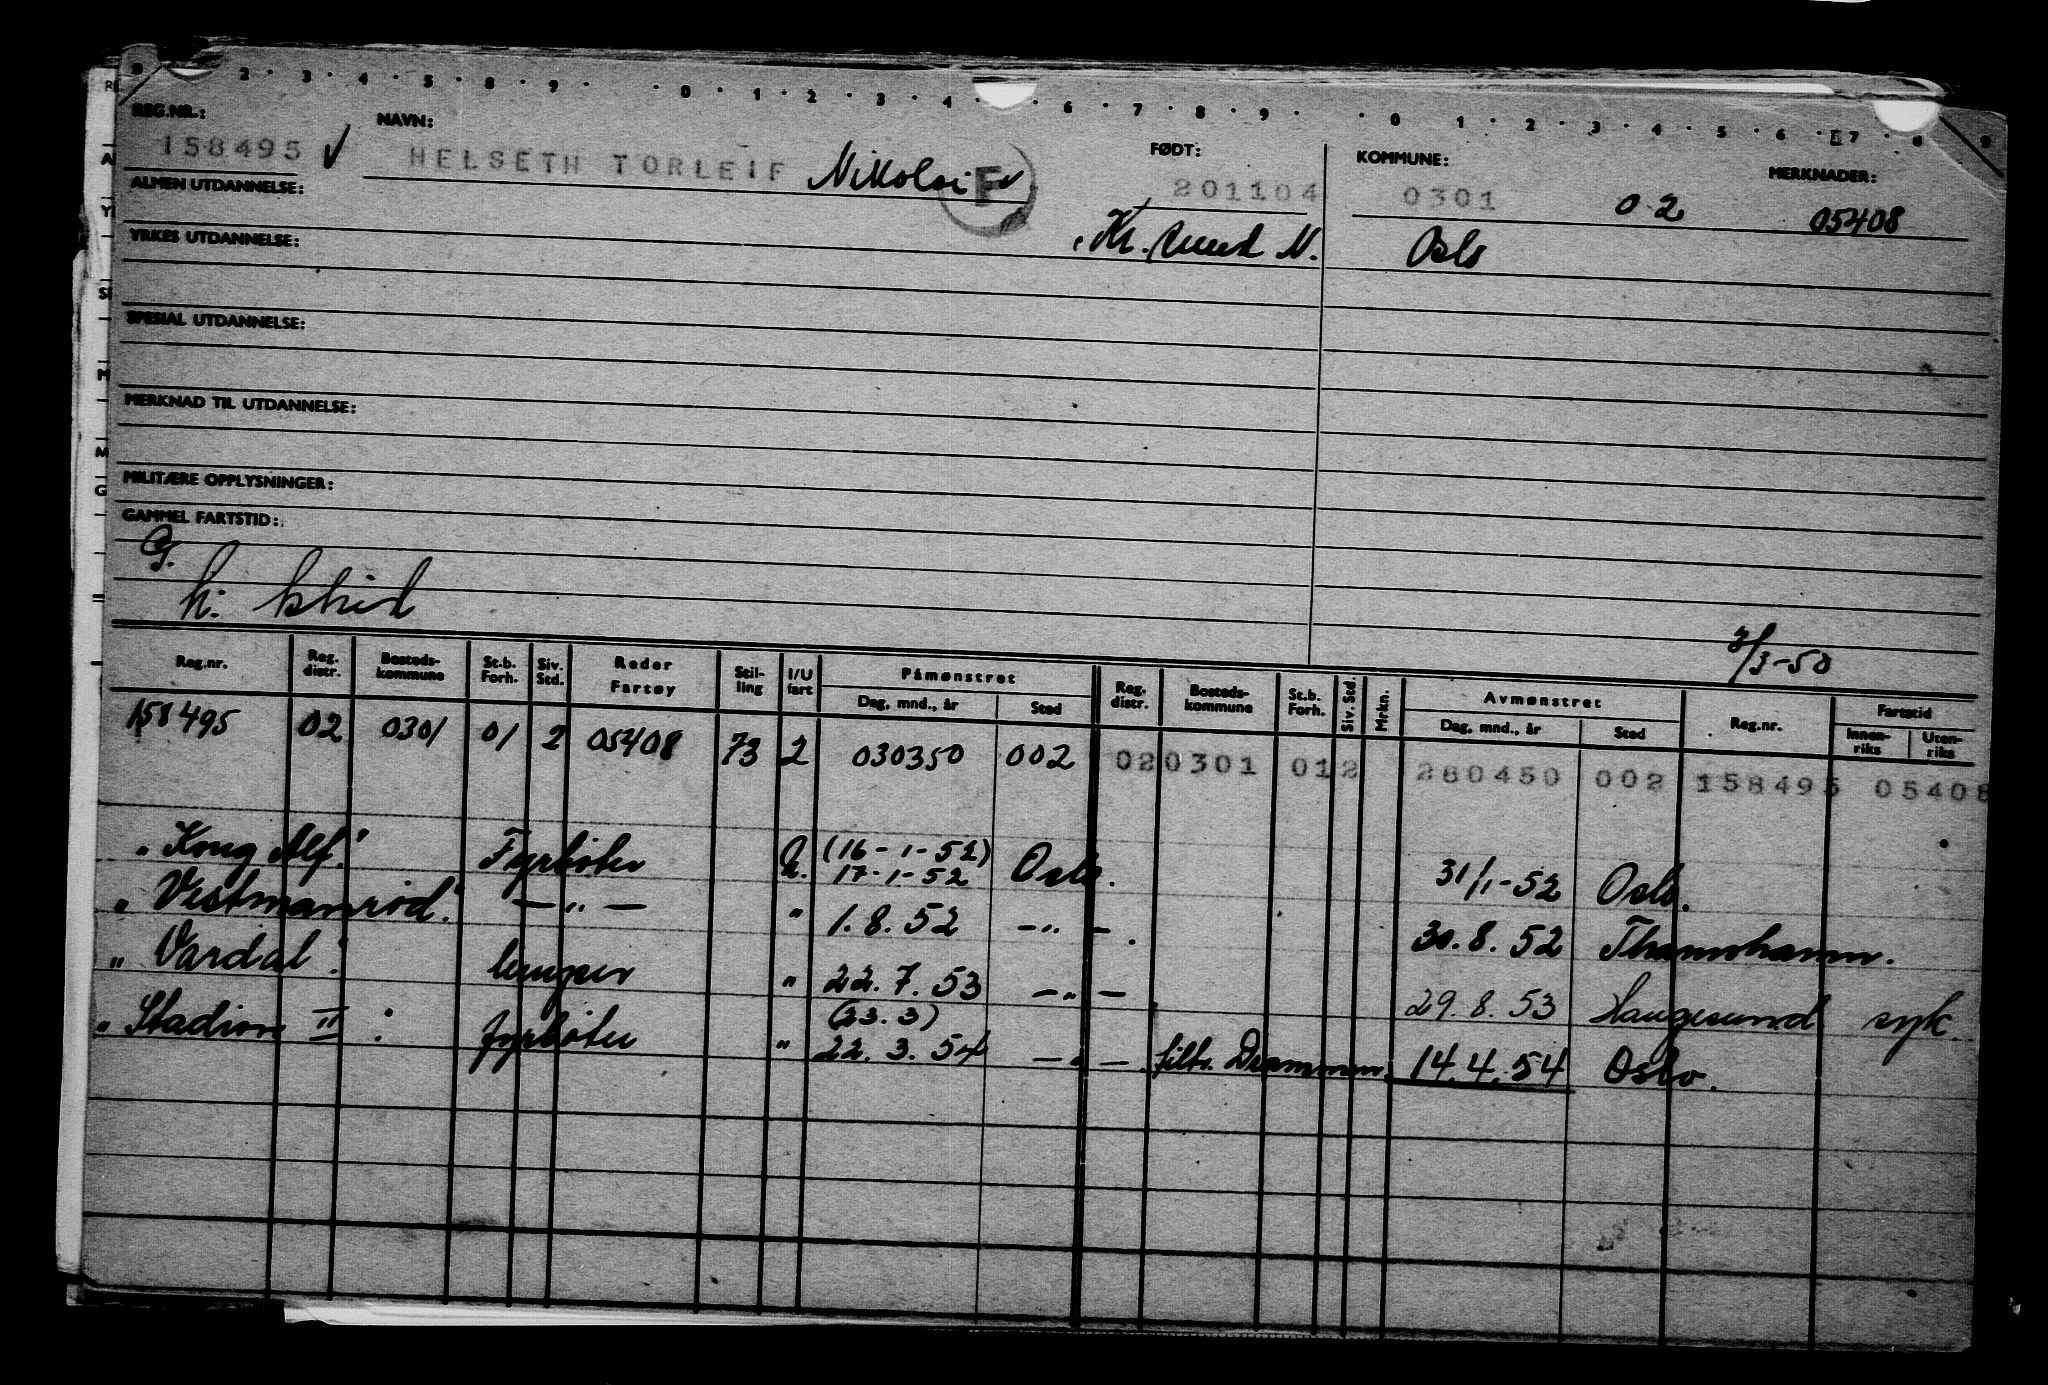 2 · 3 · 4 · 5 · 8 · 9 · · 0 · 1 · 2 · 3 · 4 · · 6 · 7 · 8 · 9 · · 0 · 1 · 2 · 3 · 4 · 5 · 6 · 7 · 8 · 9
REG.NR.: NAVN: FØDT: KOMMUNE: MERKNADER:
158495 HELSETH TORLEIF Nikolai F 201104 0301 02 05408
ALMEN UTDANNELSE: Kr.sund N. Oslo
YRKES UTDANNELSE:
SPESIAL UTDANNELSE:
MERKNAD TIL UTDANNELSE:
MILITÆRE OPPLYSNINGER:
GAMMEL FARTSTID:
G.
h:
/3-50
Reg.nr. Reg. distr. Bosteds-kommune St.b. Forh. Siv. Std. Reder Fartøy Stil-ling I/U fart Påmønstret Dag, mnd., år Sted Reg. distr. Bosteds-kommune St.b. Forh. Siv. Std. Mrkn. Avmønstret Dag, mnd., år Sted Reg.nr. Fartstid Innen-riks Uten-riks
158495 02 0301 01 2 05408 73 2 030350 002 02 0301 01 2 280450 002 158495 05408
"Kong Alf." Fyrbøter U. (16-1-52) 17-1-52 Oslo. 31/1-52 Oslo.
"Vestmanrød." —"— " 1.8.52 —"—. 30.8.52
"Vardal". lemper " 22.7.53 —"— 29.8.53 Haugesund syk.
"Stadion II": fyrbøter " (23.3) 22.3.54 —"—. filtr. Drammen. 14.4.54 Oslo.